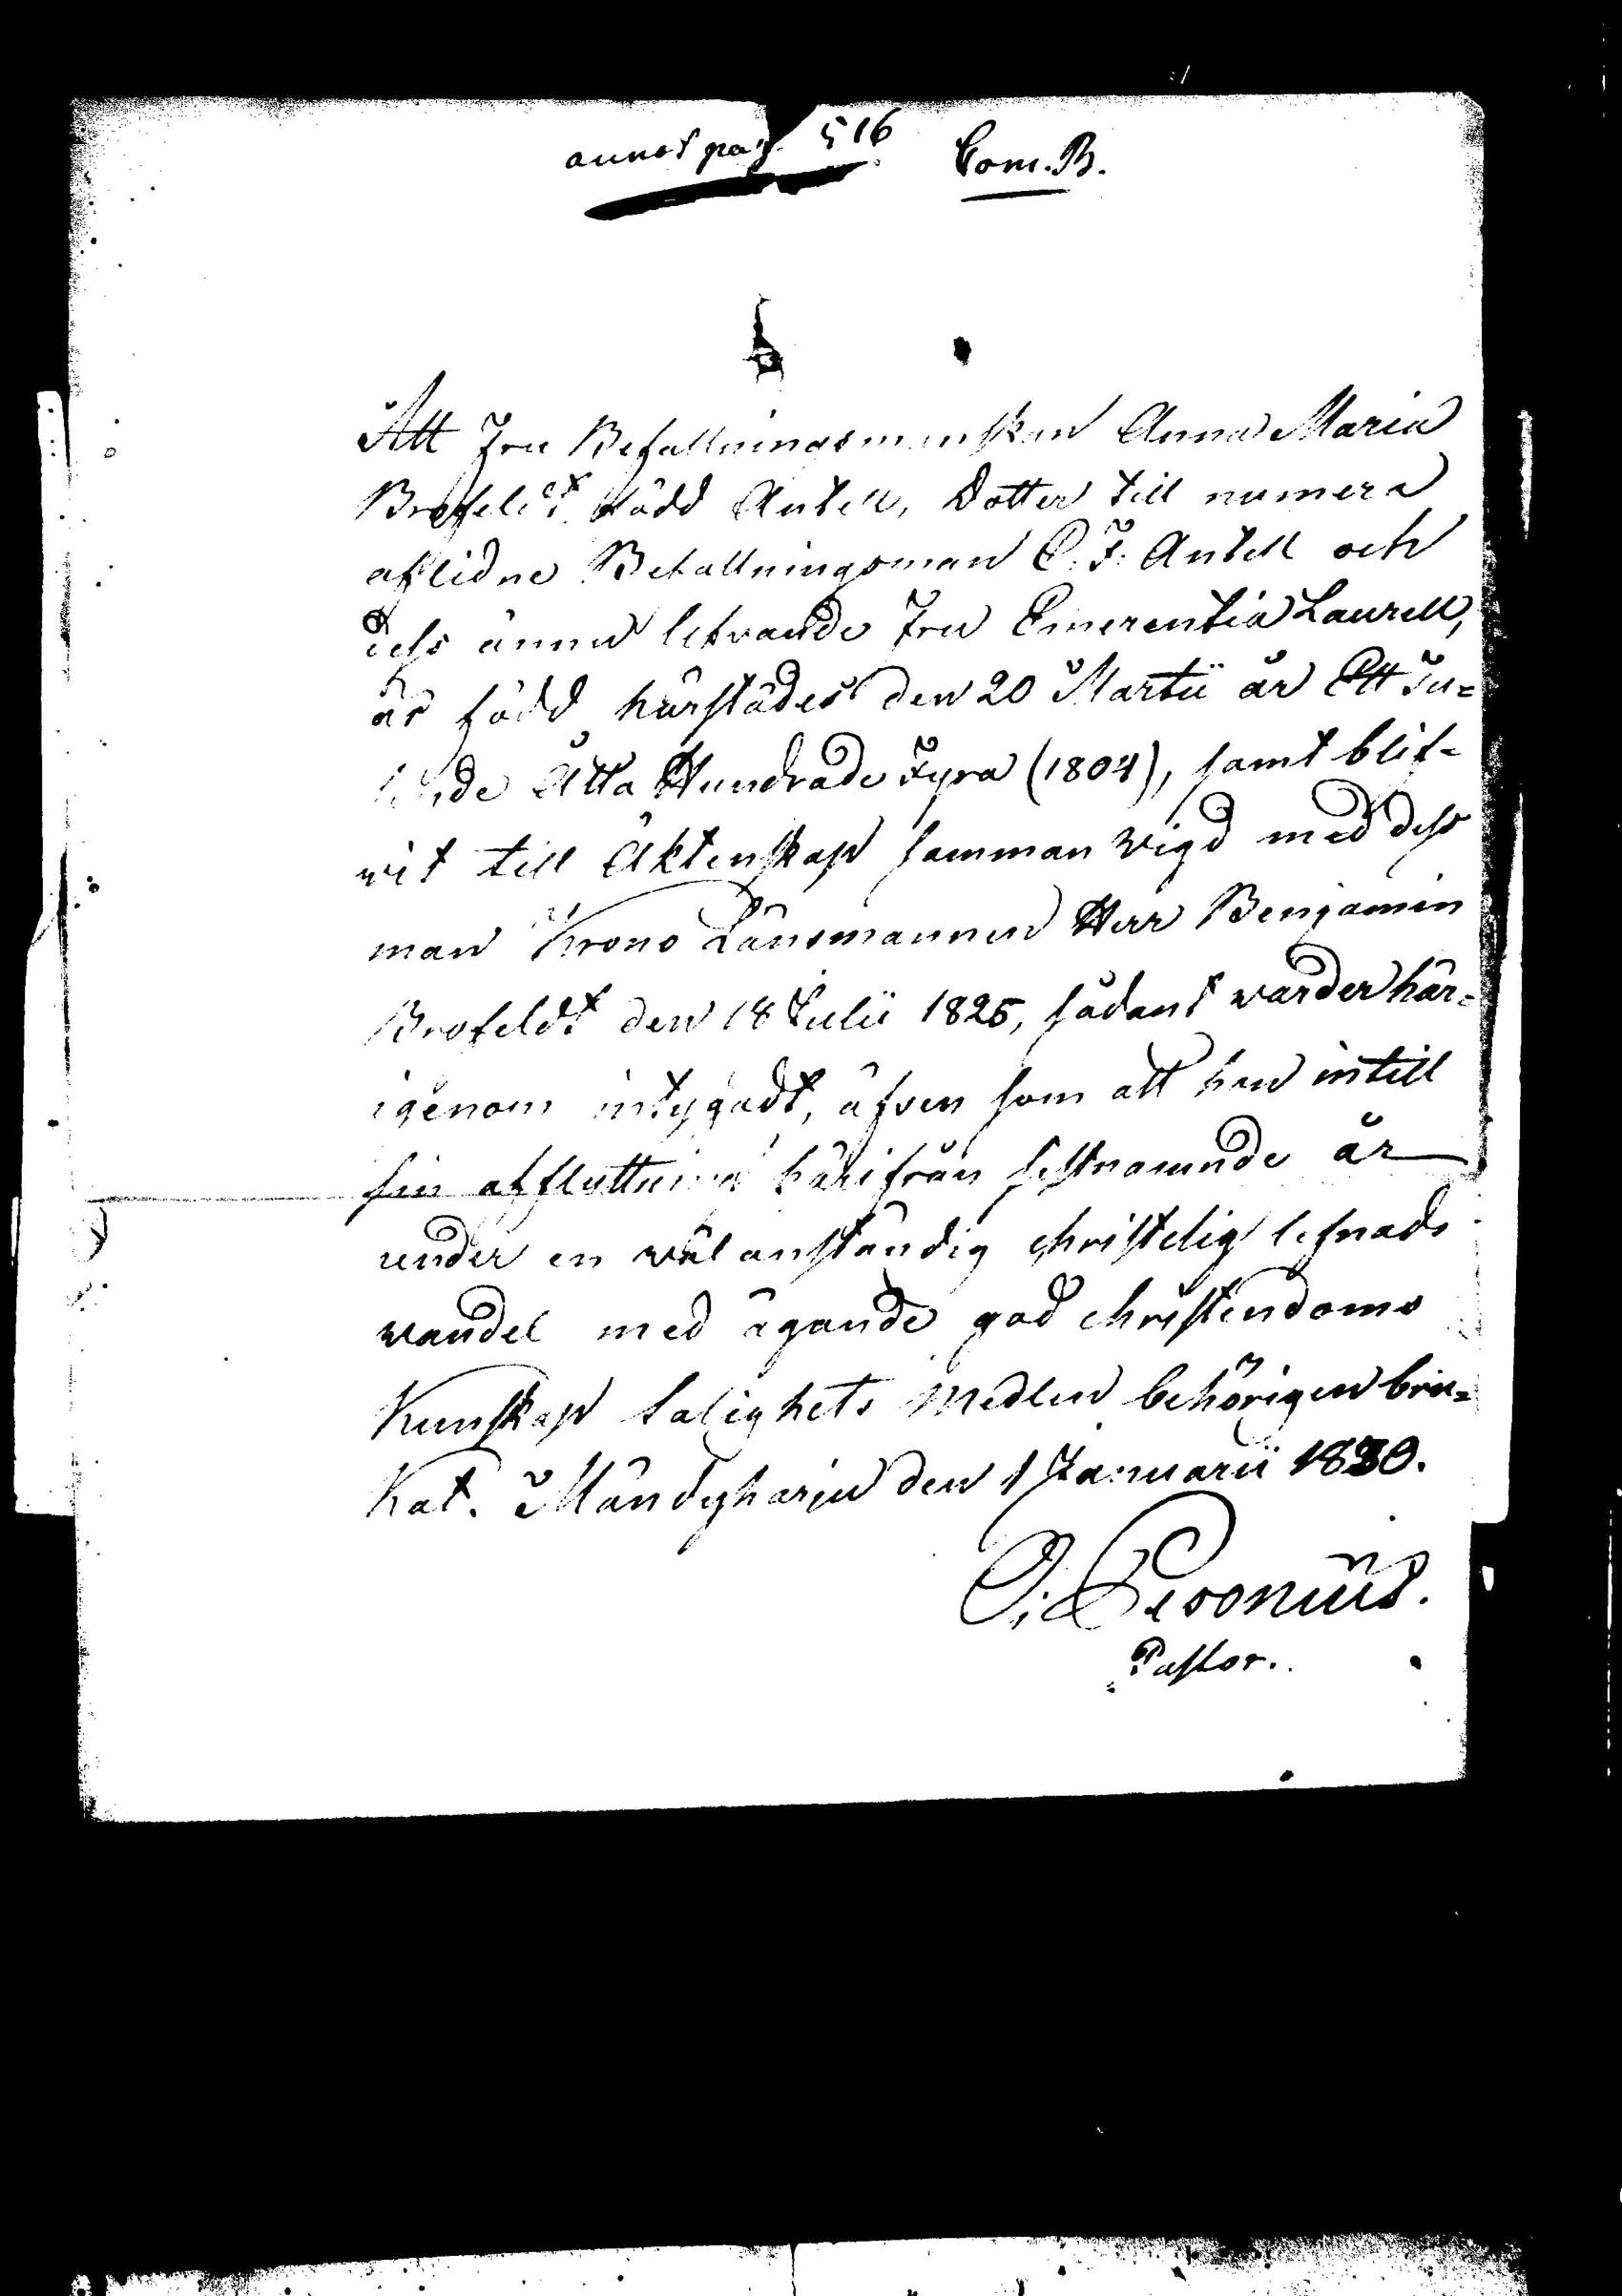 annot pag. 516 Com. B.
Att Fru Befallningsmanskan Anna Maria
Brofeldt född Antell, Dotter till numera
aflidne Befallningsman C. F. Antell och
dess ännu lefvande Fru Emerentia Laurell,
är född härstädes den 20 Martii år Ett Tu=
sende Åtta Hundrade Fyra (1804), samt blif=
vit till Äktenskap samman vigd med dess
man Krono Länsmannen Herr Benjamin
Brofeldt den 18 Julii 1825, sådant warder här=
igenom intygadt, äfven som att hon intill
sin afflyttning härifrån sistnämnde år
under en wälanständig christelig lefnads
wandel med ägande god christendoms
Kunskap Salighets Medlen behörigen bru=
kat. Mändyharju den 1 Januarii 1830.
Pastor.